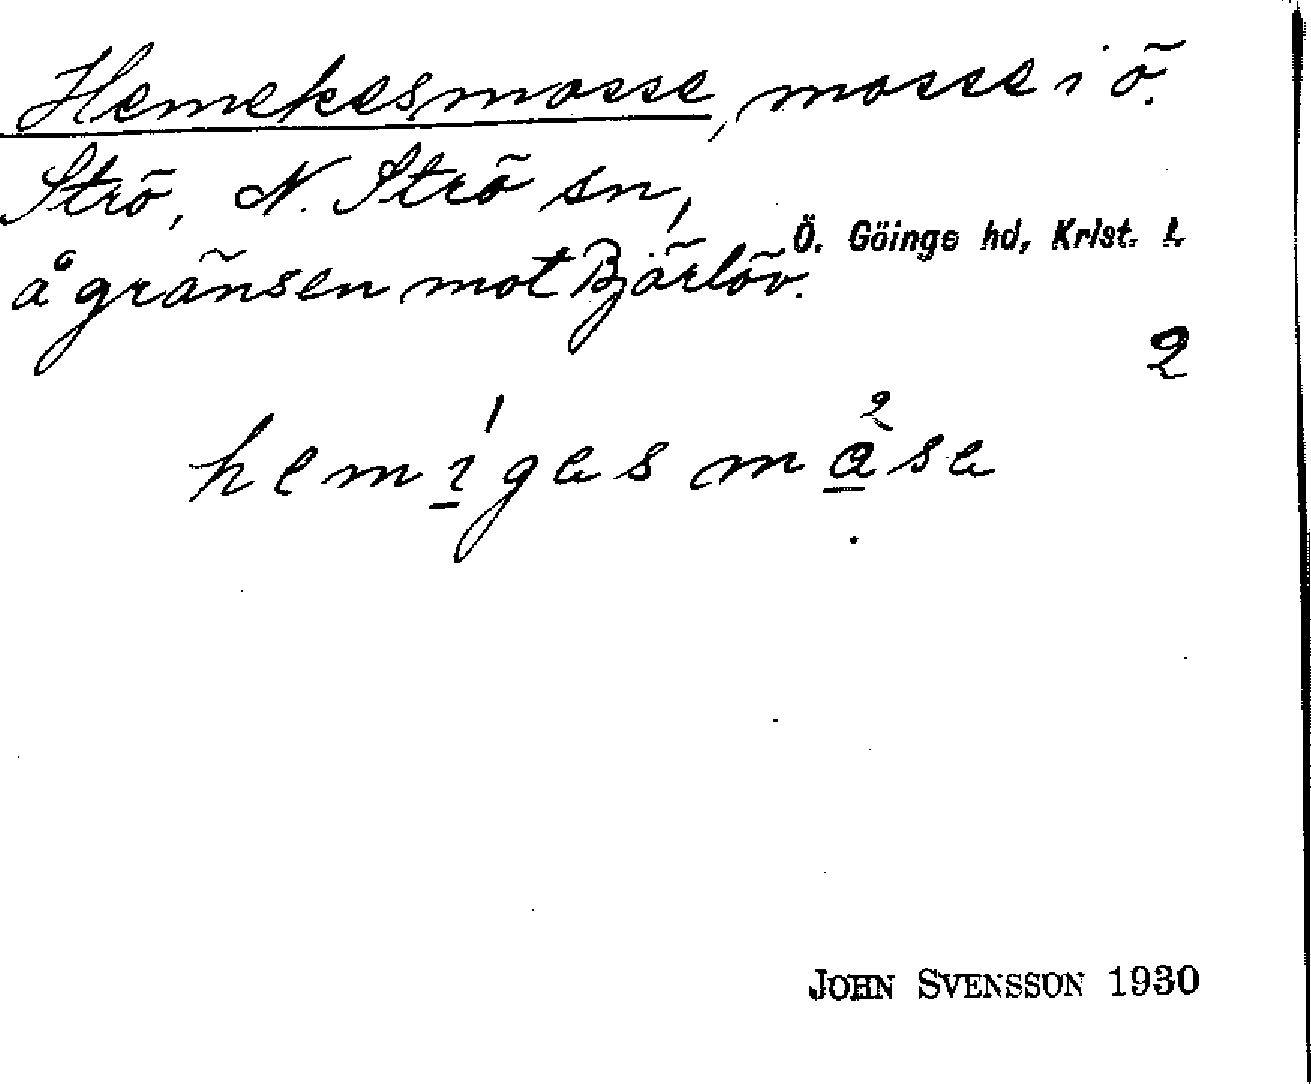 Hemekesmosse, mosse i ö.
Strö, N. Strö sn,
Ö. Göinge hd, Krist. l.
å gränsen mot Bjärlöv.
2
hemígesmåse
2
JOHN SVENSSON 1930